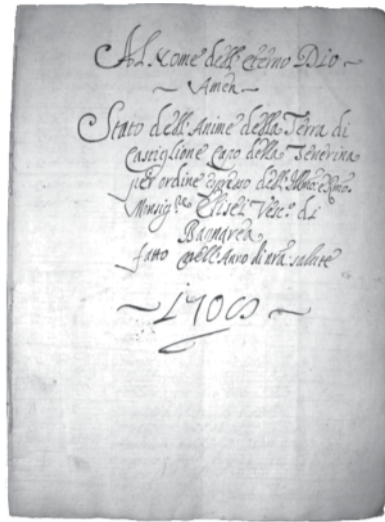 Al Nome dell'eterno Dio
Amen
Stato dell'Anime della Terra di
Castiglione Capo della Teverina
per ordine espresso dell'Illmo: e Rmo:
Monsig.re Eliseì Vesc.o di
Bagnarea
fatto nell'Anno di nra salute